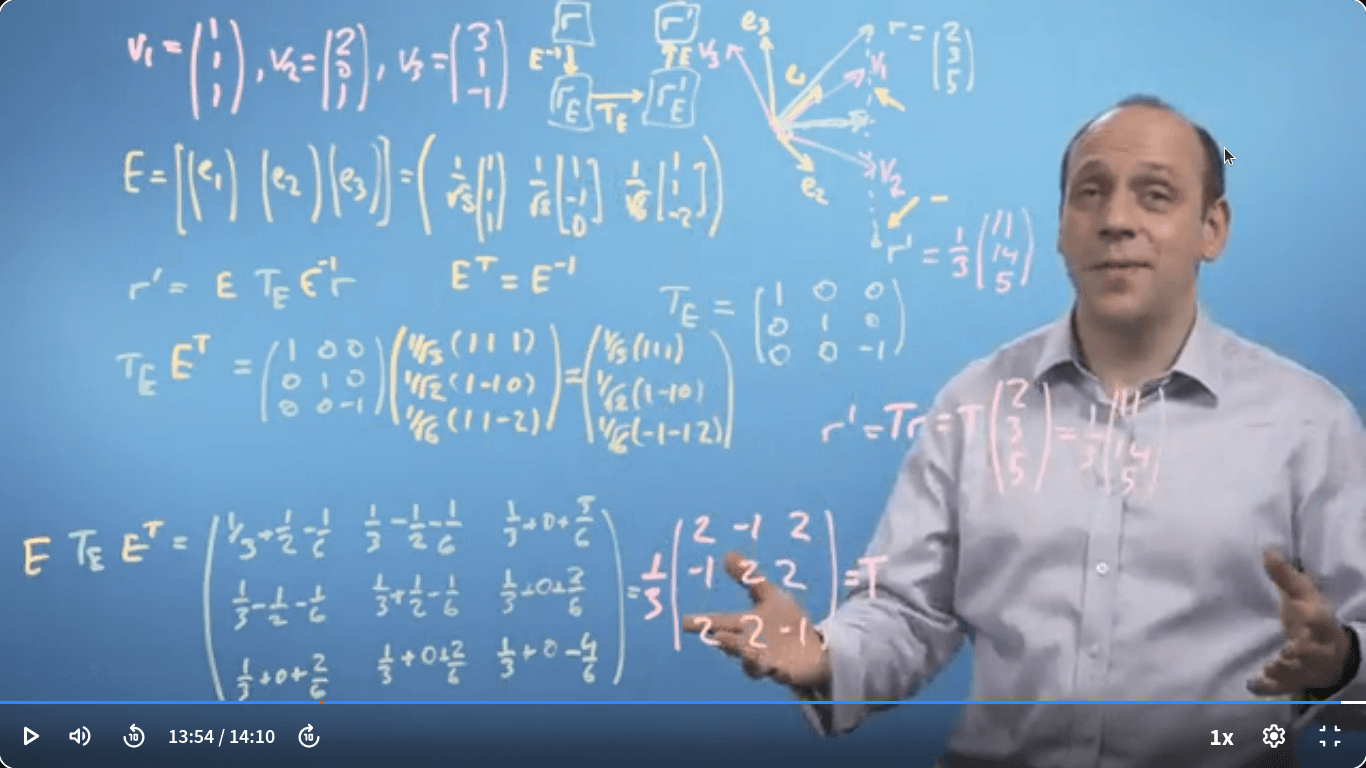 v₁ = (1 1 1), v₂ = (2 0 1), v₃ = (3 1 -1)
r r'
E⁻¹ E
r_E T_E r'_E
e₃ v₃ e₁ v₁ e₂ v₂
r = (2 3 5)
E = [(e₁) (e₂) (e₃)] = (1/√3 (1 1 1) 1/√2 [1 -1 0] 1/√6 [1 1 -2])
r' = 1/3 (11 14 5)
r' = E T_E E⁻¹ r E^T = E⁻¹
T_E = (1 0 0
0 1 0
0 0 -1)
T_E E^T = (1 0 0
0 1 0
0 0 -1) (1/√3 (1 1 1)
1/√2 (1 -1 0)
1/√6 (1 1 -2)) = (1/√3 (1 1 1)
1/√2 (1 -1 0)
1/√6 (-1 -1 2))
r' = Tr = T (2 3 5) = 1/3 (11 14 5)
E T_E E^T = (1/3+1/2-1/6 1/3-1/2-1/6 1/3+0+2/6
1/3-1/2-1/6 1/3+1/2-1/6 1/3+0+2/6
1/3+0+2/6 1/3+0+2/6 1/3+0-4/6) = 1/3 (2 -1 2
-1 2 2
2 2 -1) = T
10 13:54 / 14:10 10 1x